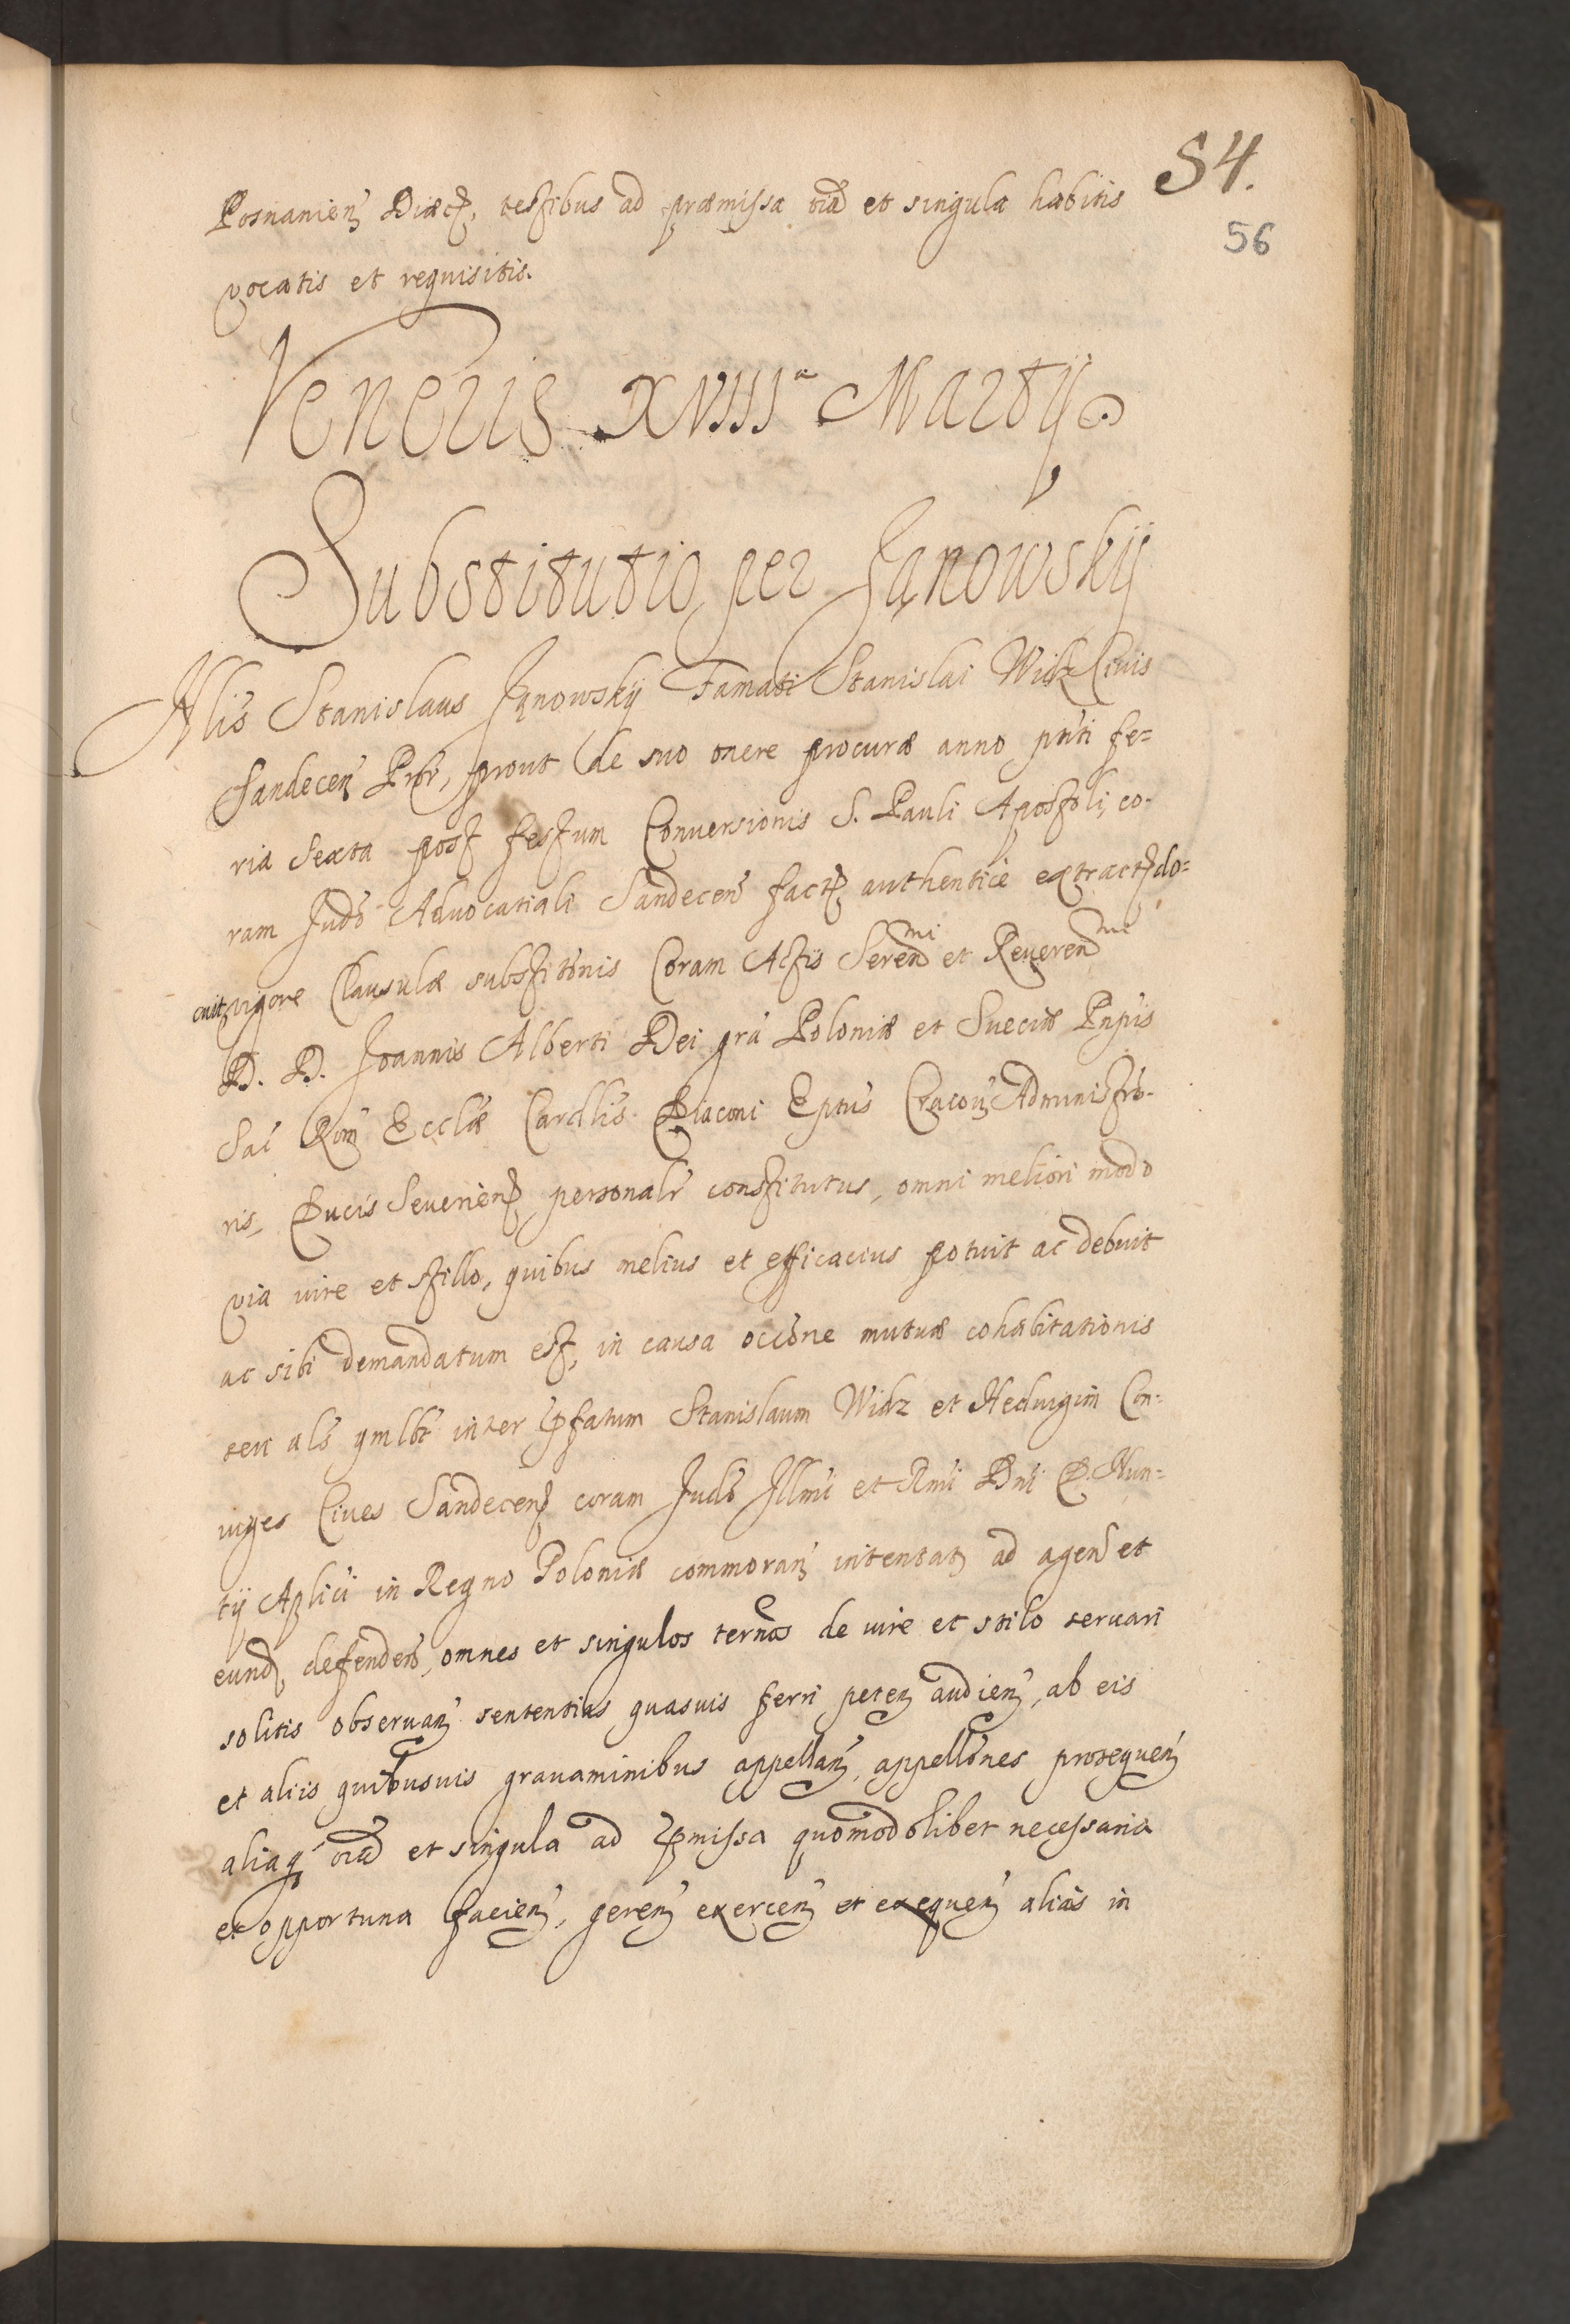 54.
56
Posnanien Diæc, testibus ad præmissa oia et singula habitis
vocatis et requisitis.
Veneris XVIIIa Martij
Substitutio per Janowskij
Nlis Stanislaus Janowskij Famati Stanislai Widz Civis
Sandecen Prõr, prout de suo onere procuræ anno pñti fe=
ria Sexta post festum Conversionis S. Pauli Apostoli, co-
ram Judõ Advocatiali Sandecen fact, authenticè extract do=
cuit, vigore Clausulæ substitõnis Coram Actis Serenmi et Reverenmi
D. D. Joannis Alberti Dei grã Poloniæ et Sueciæ Pnpis
Sac Rom Ecclæ Cardlis Diaconi Eptus Cracou Administrõ-
ris, Ducis Severien, personalr constitutus, omni meliori modo
via iure et stillo, quibus melius et efficacius potuit ac debuit
ac sibi demandatum est, in causa occõne mutuæ cohabitationis
seu als qmlbt inter pfatum Stanislaum Widz et Hedvigim Con=
iuges Cives Sandecen coram Judõ Illmi et Rmi Dni D. Nun=
tij Aplici in Regno Poloniæ commoran intentat, ad agen et
eund, defenden, omnes et singulos ternos de iure et stilo servari
solitis observan sententias quasvis ferri peten audien, ab eis
et aliis quibusvis gravaminibus appellan, appellõnes prosequen
aliaq oia et singula ad pmissa quomodolibet necessaria
et opportuna facien, geren exercen et exequen alias in